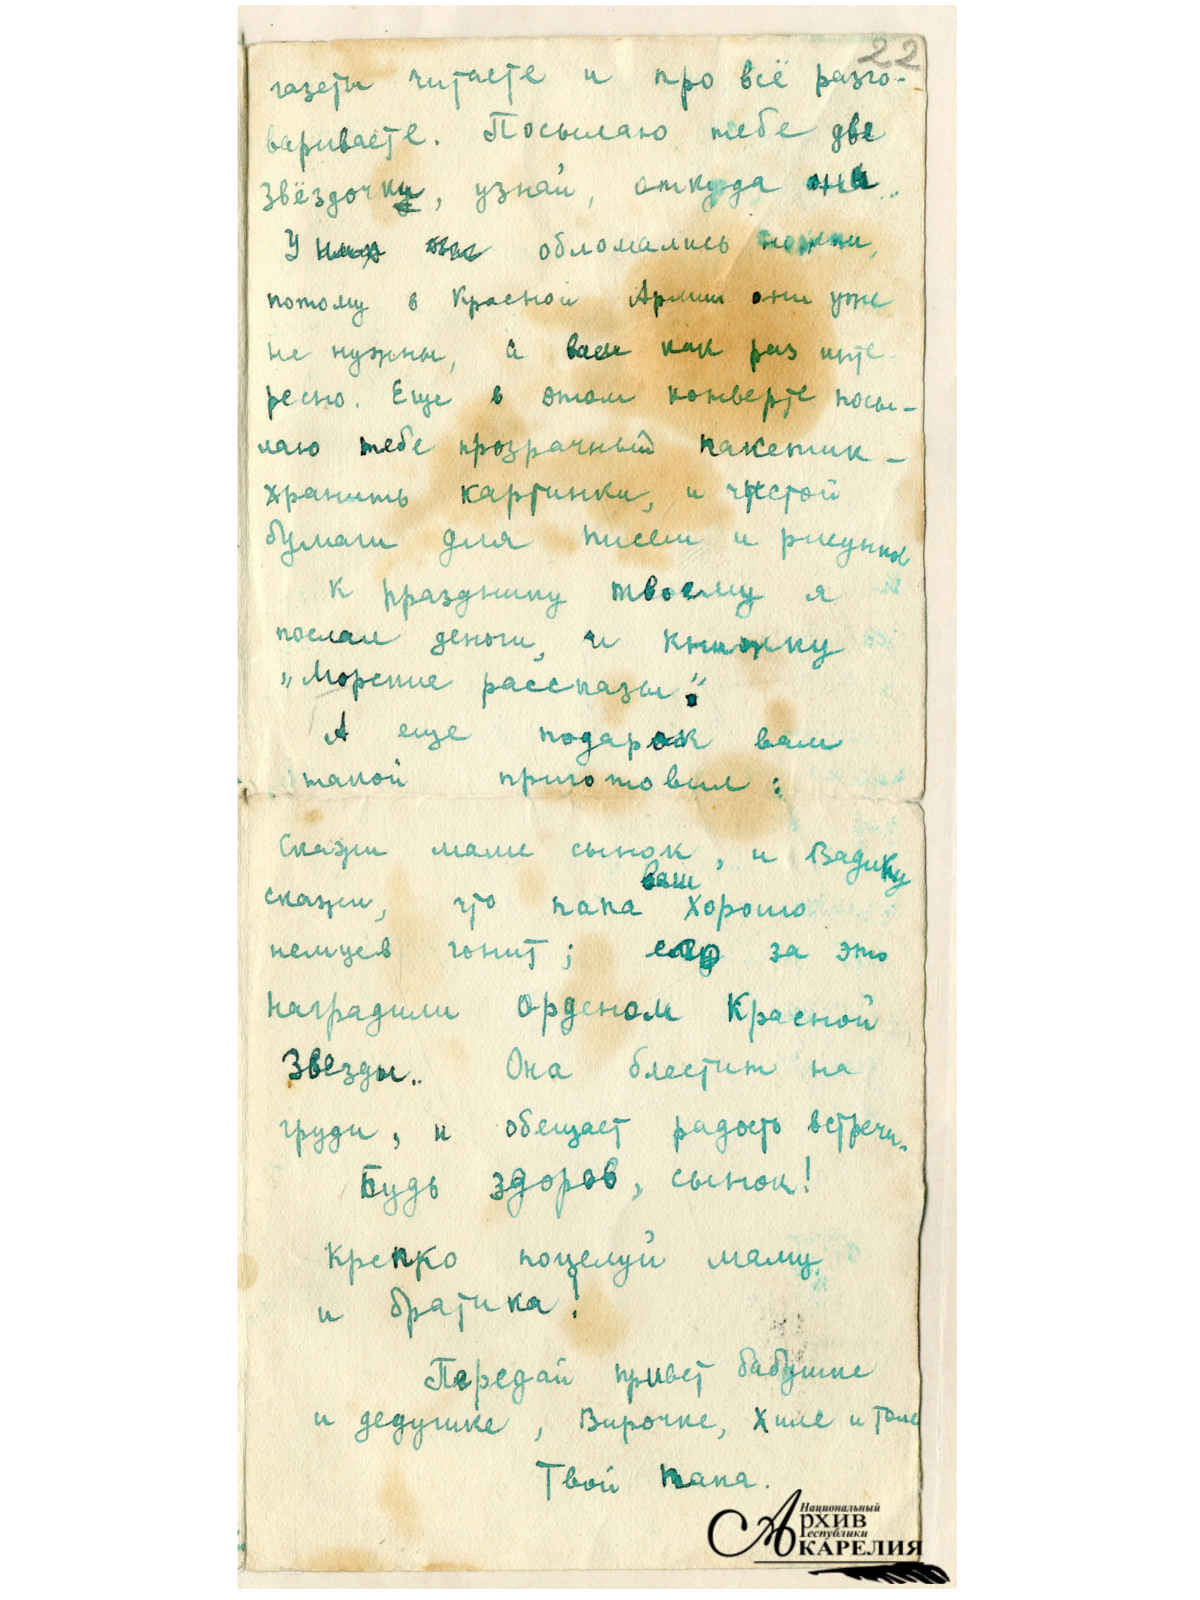 22
газеты читаете и про всё разго-
вариваете. Посылаю тебе две
звёздочки, узнай, откуда они..
У них обломались ножки,
потому в Красной Армии они уже
не нужны, а вам как раз инте-
ресно. Еще в этом конверте посы-
лаю тебе прозрачный пакетик -
хранить картинки, и чистой
бумаги для писем и рисунков
К празднику твоему я
послал деньги, и книжку
"Морские рассказы".
А еще подарок вам
такой приготовил:
Скажи маме сынок, и Вадику
ваш
скажи, что папа хорошо
немцев гонит; его за это
наградили орденом Красной
Звезды.. Она блестит на
груди, и обещает радость встречи..
Будь здоров, сынок!
Крепко поцелуй маму
и братика!
Передай привет бабушке
и дедушке, Вирочке, Хиле и Толе
Твой папа.
Национальный
Архив
Республики
Карелия